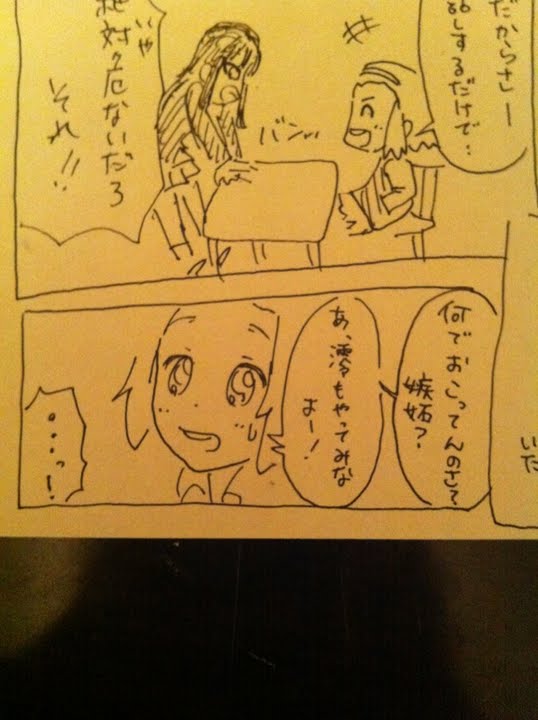 だからさー
話しするだけで‥
バンッ
いや
絶対危ないだろ
それ!!
何でおこってんのさ?
嫉妬?
あ、澪もやってみな
よー!
…っ!
いた